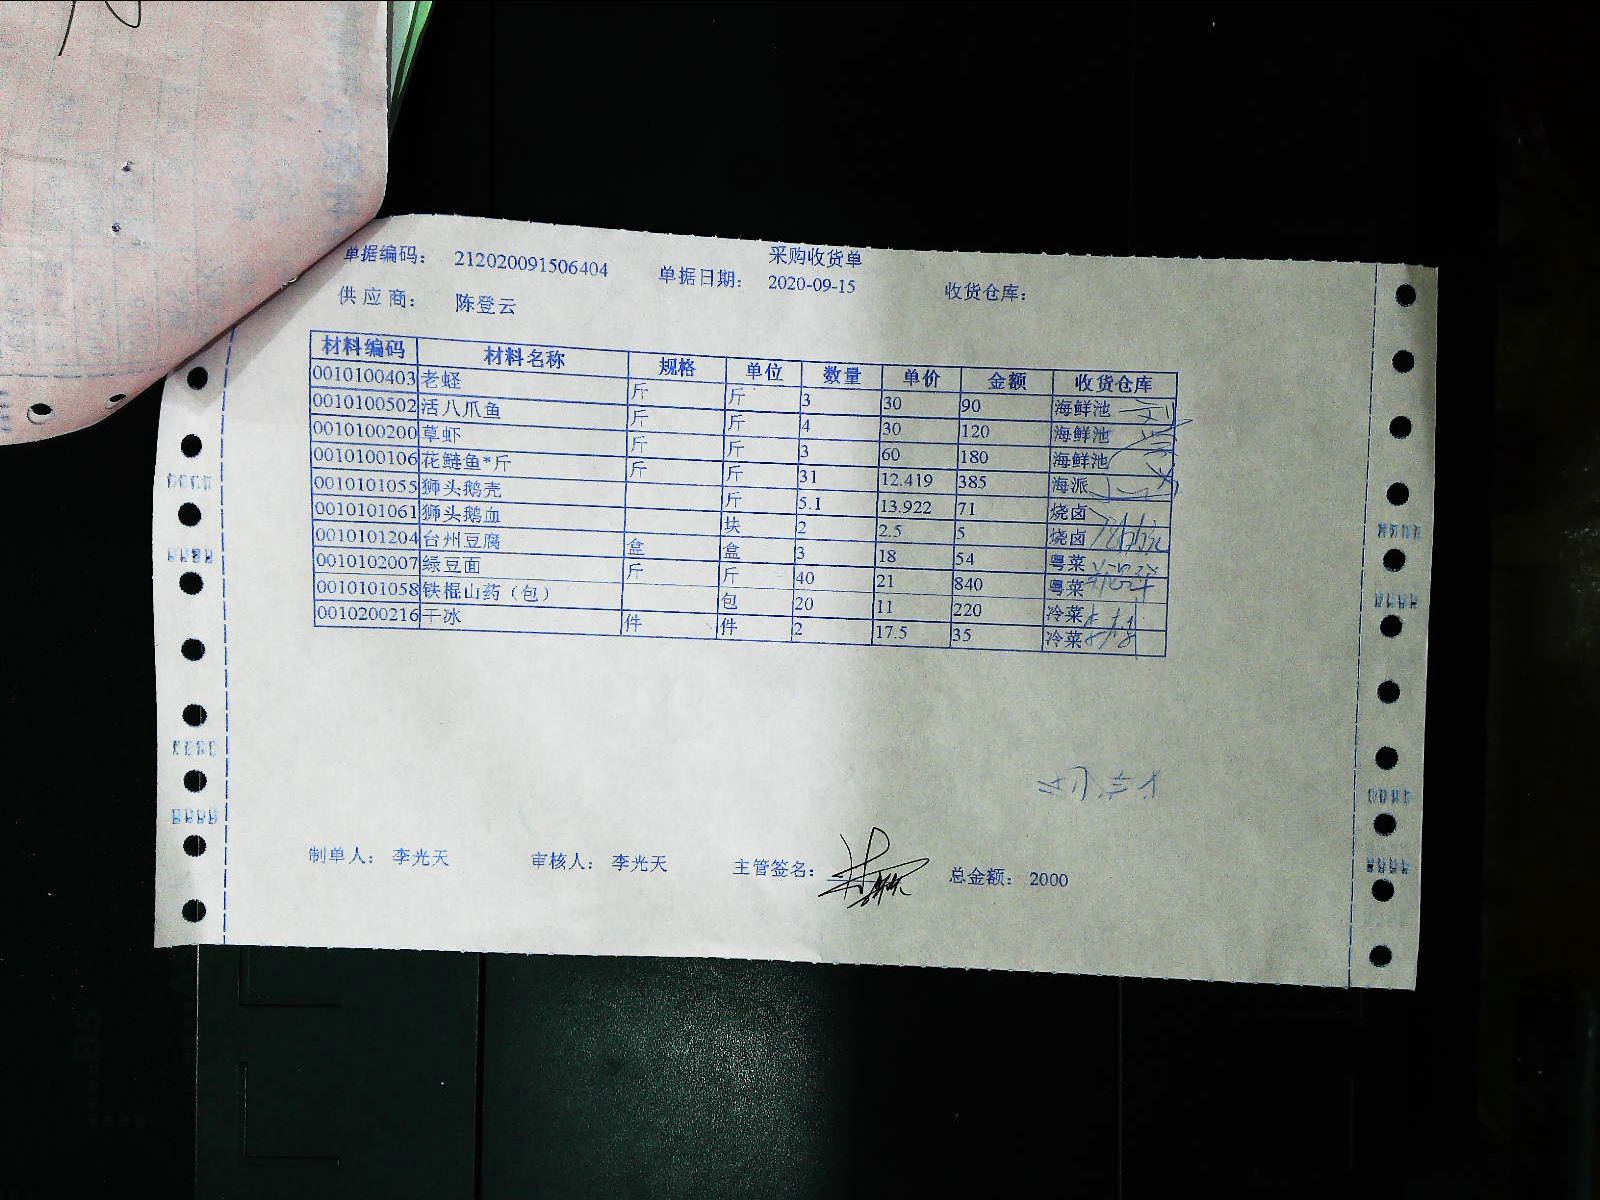 采购收货单
单据编码： 212020091506404 单据日期： 2020-09-15 收货仓库：
供应商： 陈登云
材料编码 材料名称 规格 单位 数量 单价 金额 收货仓库
0010100403 老蛏 斤 斤 3 30 90 海鲜池
0010100502 活八爪鱼 斤 斤 4 30 120 海鲜池
0010100200 草虾 斤 斤 3 60 180 海鲜池
0010100106 花鲢鱼*斤 斤 斤 31 12.419 385 海派
0010101055 狮头鹅壳 斤 5.1 13.922 71 烧卤
0010101061 狮头鹅血 块 2 2.5 5 烧卤
0010101204 台州豆腐 盒 盒 3 18 54 粤菜
0010102007 绿豆面 斤 斤 40 21 840 粤菜
0010101058 铁棍山药（包） 包 20 11 220 冷菜
0010200216 干冰 件 件 2 17.5 35 冷菜
制单人： 李光天 审核人： 李光天 主管签名： 总金额： 2000